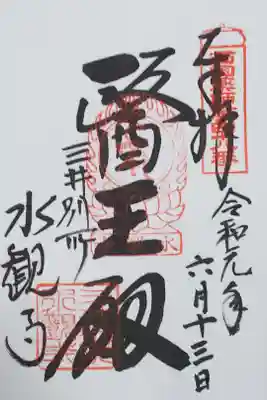 奉拝
令和元年
六月十三日
醫王殿
三井別所
水観寺